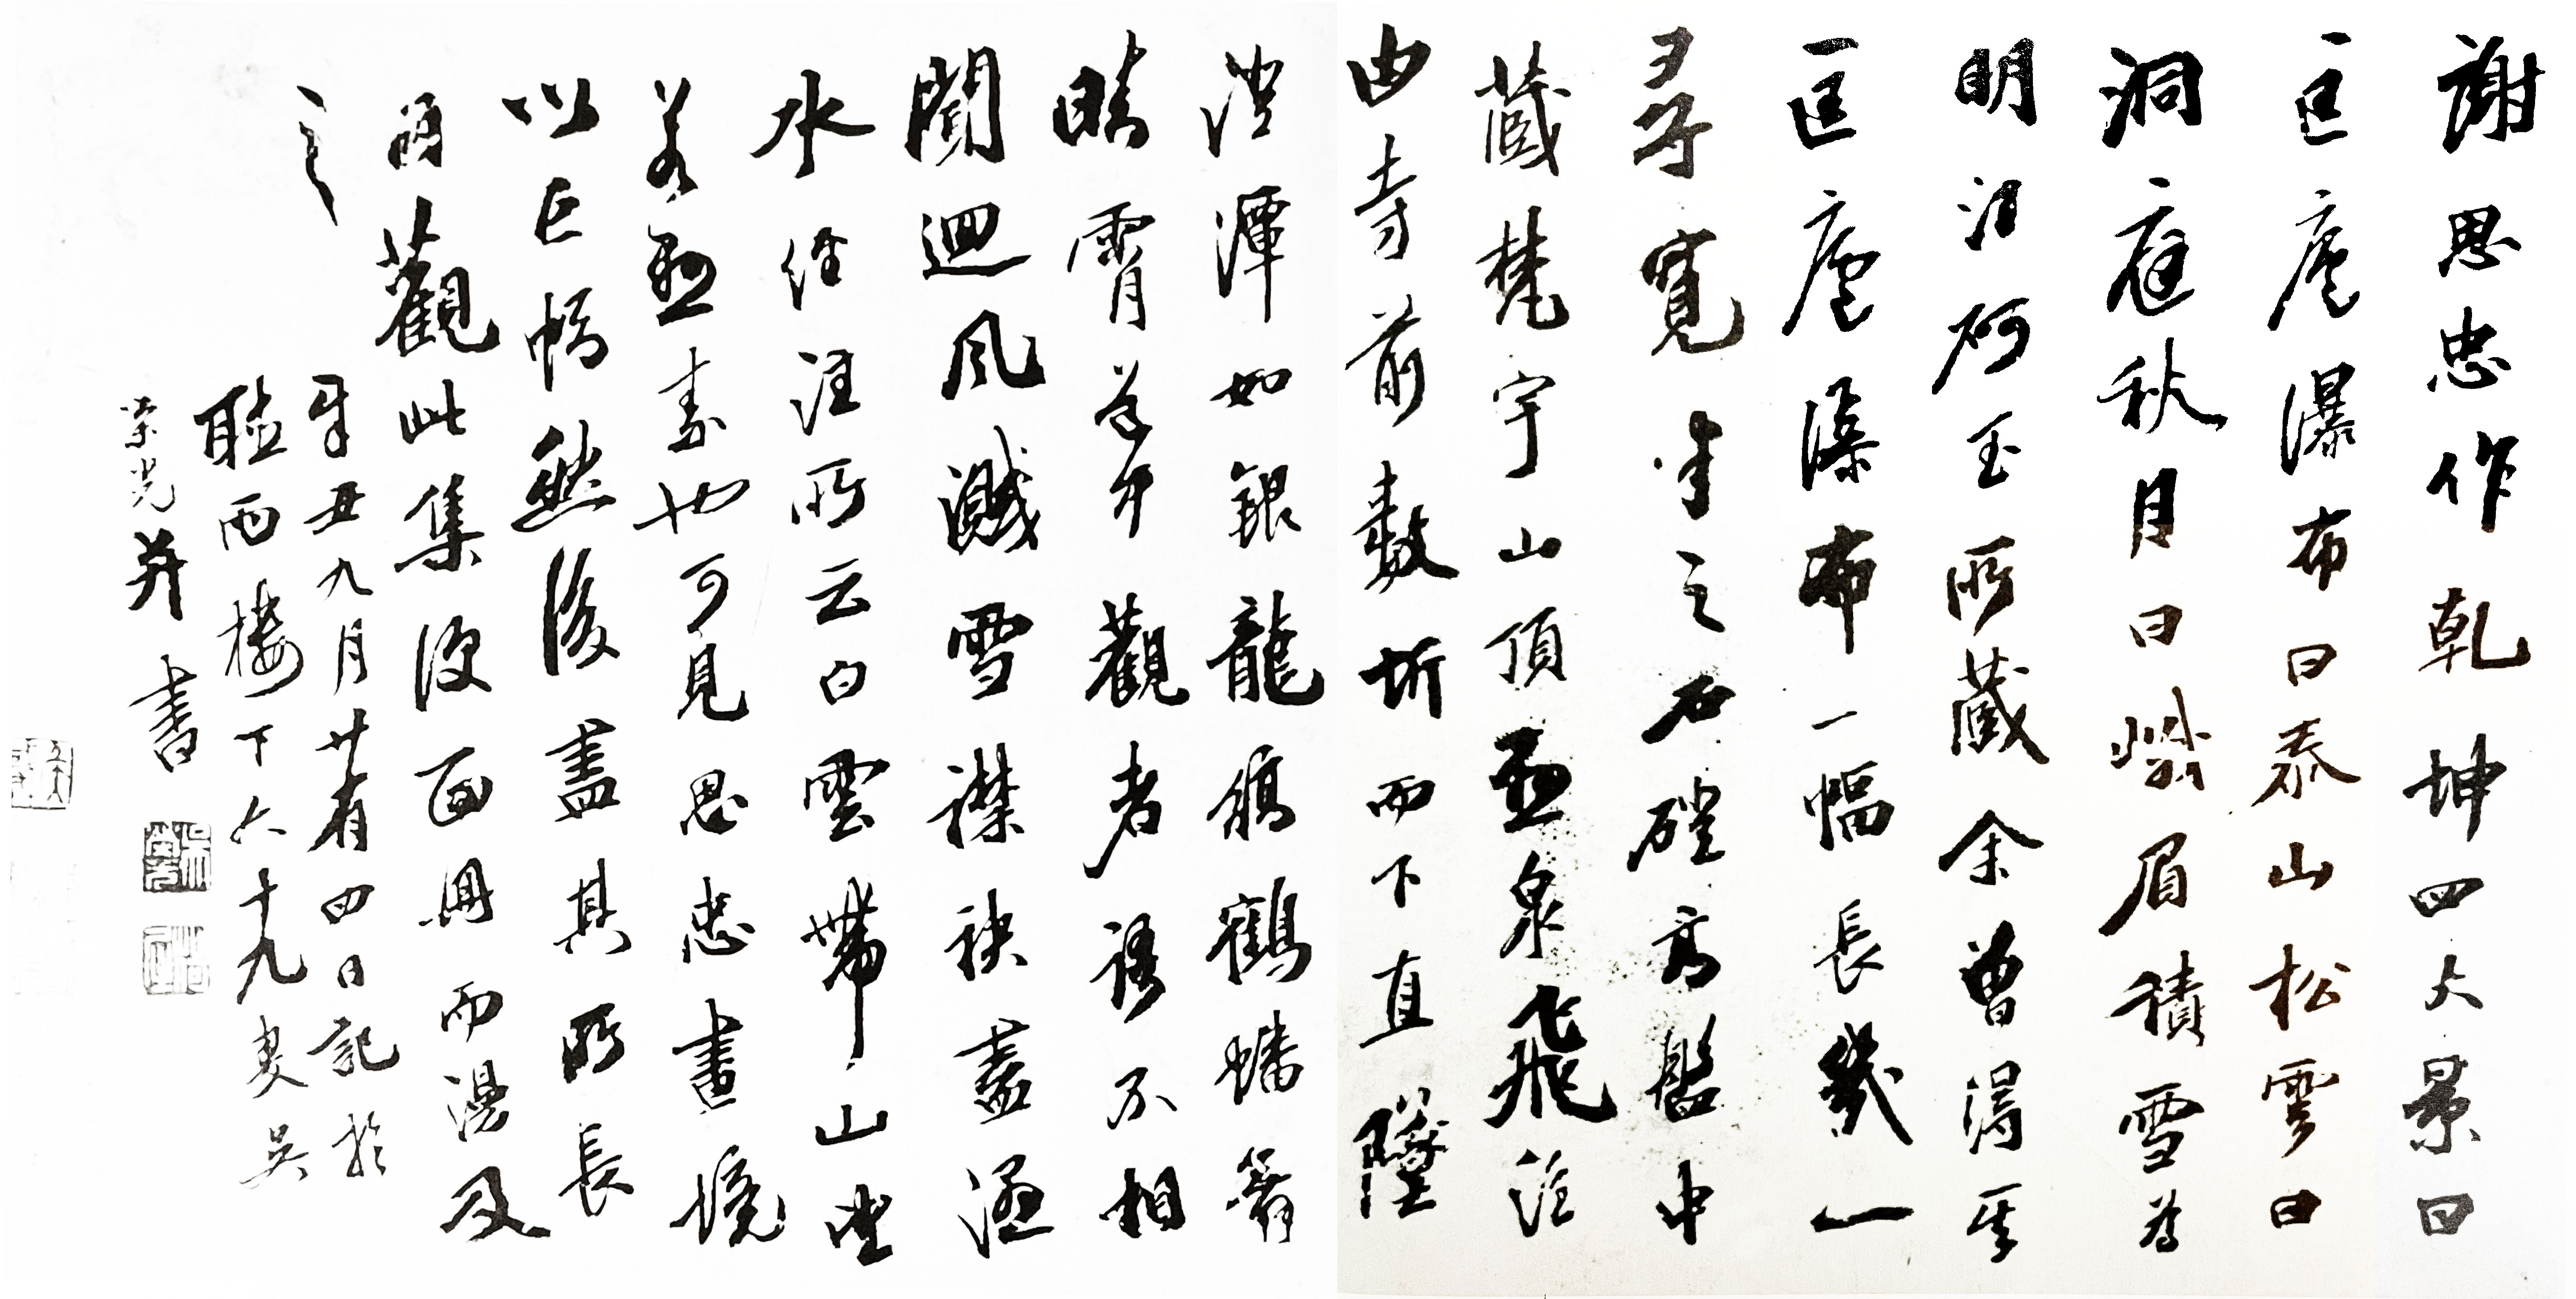 謝思忠作乾坤四大景曰
匡廬瀑布曰泰山松雲曰
洞庭秋月曰峨眉積雪為
明汪砢玉所藏余曾得其
匡廬瀑布一幅長幾一
尋寬半之石磴高盤中
藏梵宇山頂懸泉飛注
由寺前數折而下直墜
澄潭如銀龍鵁鶴蟠翥
晴霄萬仞觀者語不相
聞迴風濺雪襟袂盡溼
水經注所云白雲帶山望
若懸素也可見思忠畫境
以巨幅然後盡其所長
再觀此集設色興而漫及
之
辛丑九月廿有四日記於
聽雨樓下六十九叟吳
榮光并書